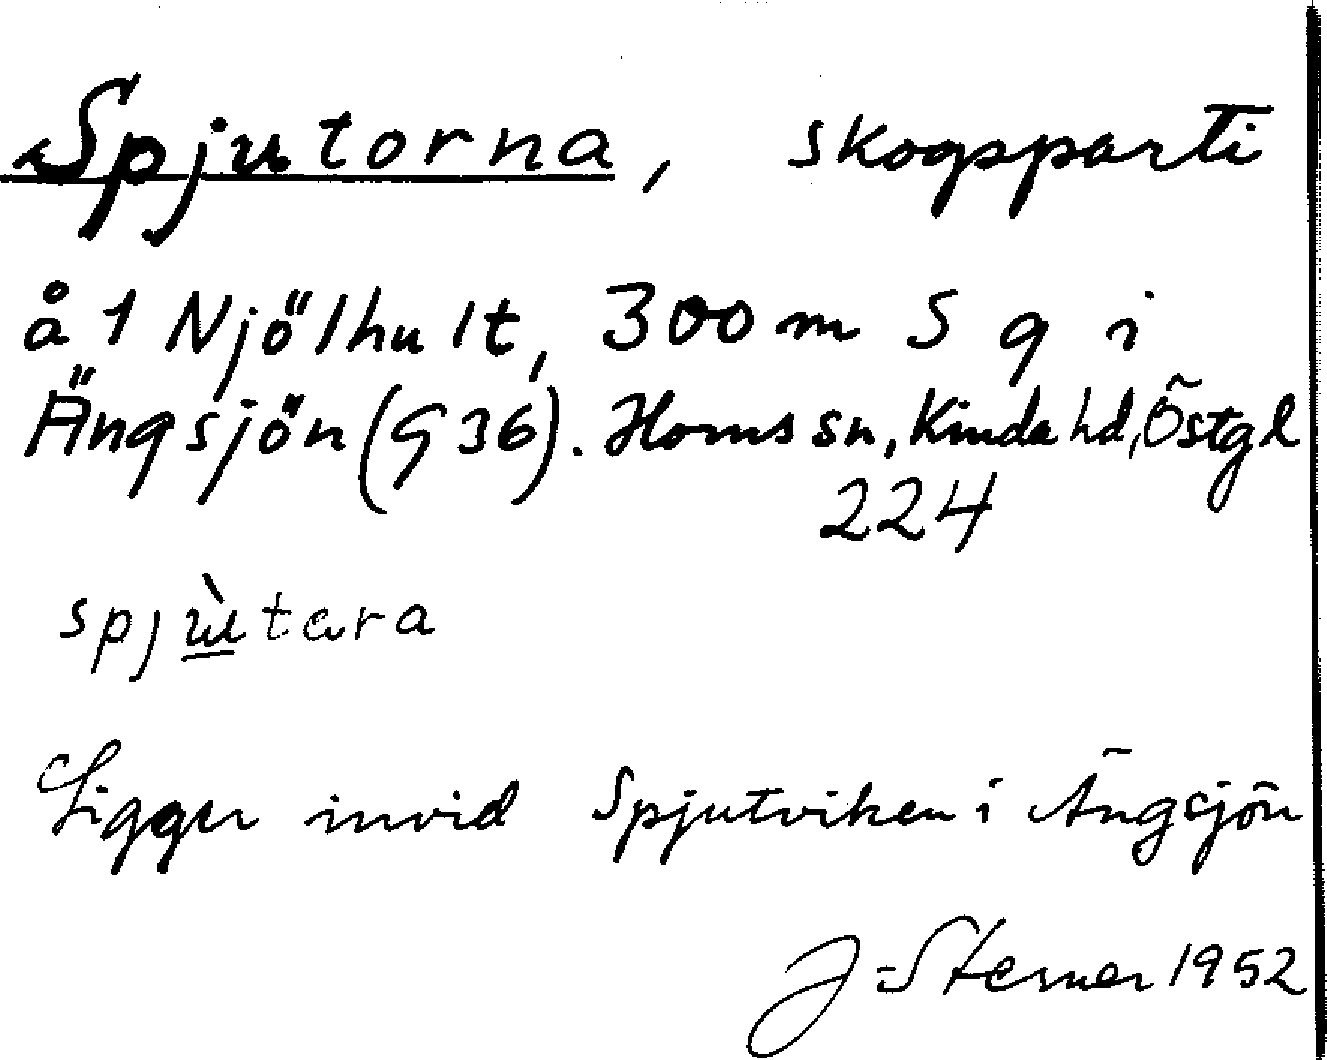 Spjutorna, skogsparti
å 1 Njölhult, 300 m S g i
Ängsjön (G 36). Horns sn, Kinda hd, Östgl
224
spjùtara
Ligger invid Spjutviken i Ängsjön
J. Sterner 1952